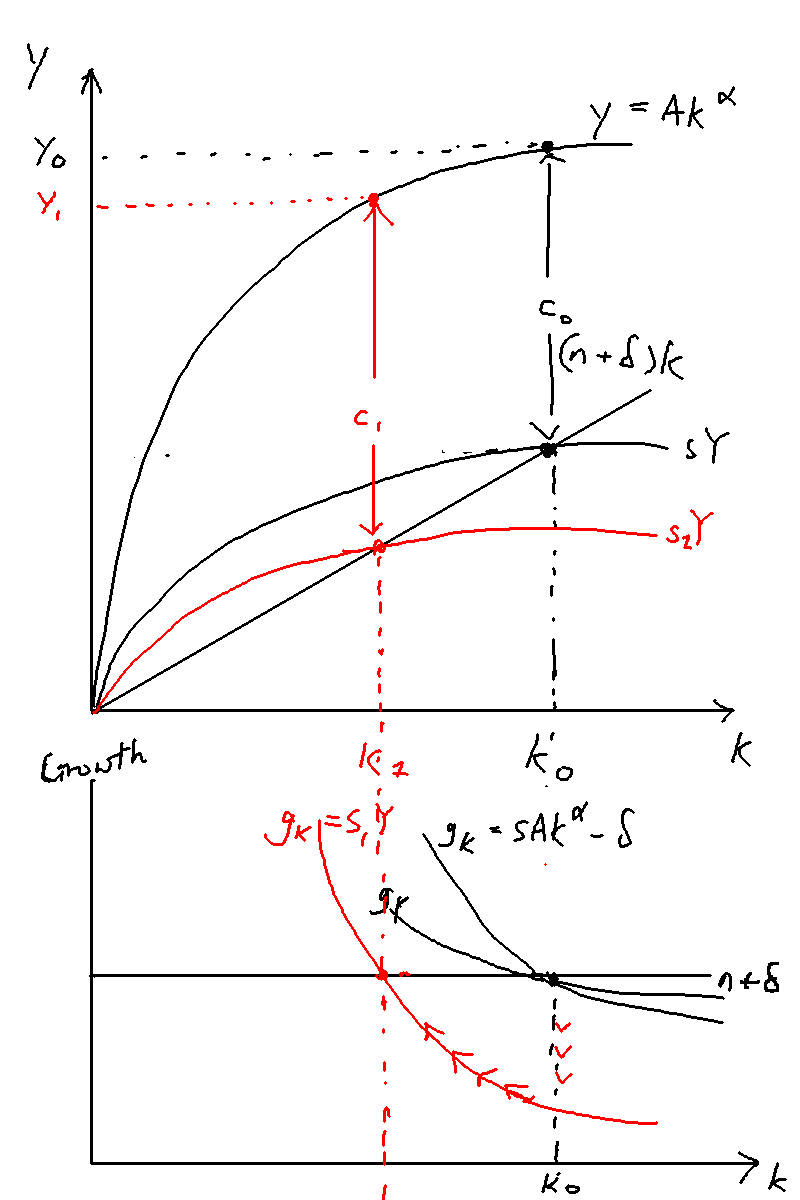 y
y = Ak^α
Y₀
Y₁
c₀
(n + δ)k
c₁
sY
s₁Y
k₁
k₀
k
Growth
g_K = s₁Y
g_K = sAk^α - δ
g_Y
n + δ
k₀
k